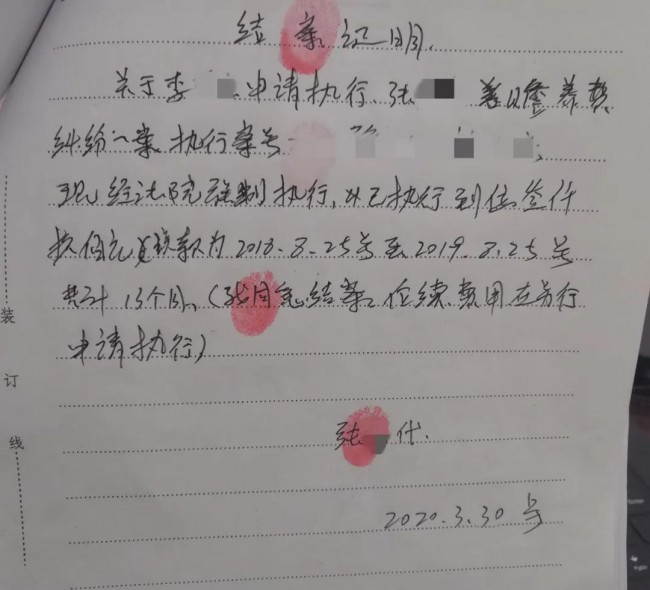 结案证明
关于李 申请执行张 赡养费
纠纷一案 执行案号
现经法院强制执行,以已执行到位叁仟
玖佰元 该款为2018.8.25号至2019.8.25号
共计13个月,(我同意结案,后续费用在另行
申请执行)
张 代.
2020.3.30号
装
订
线